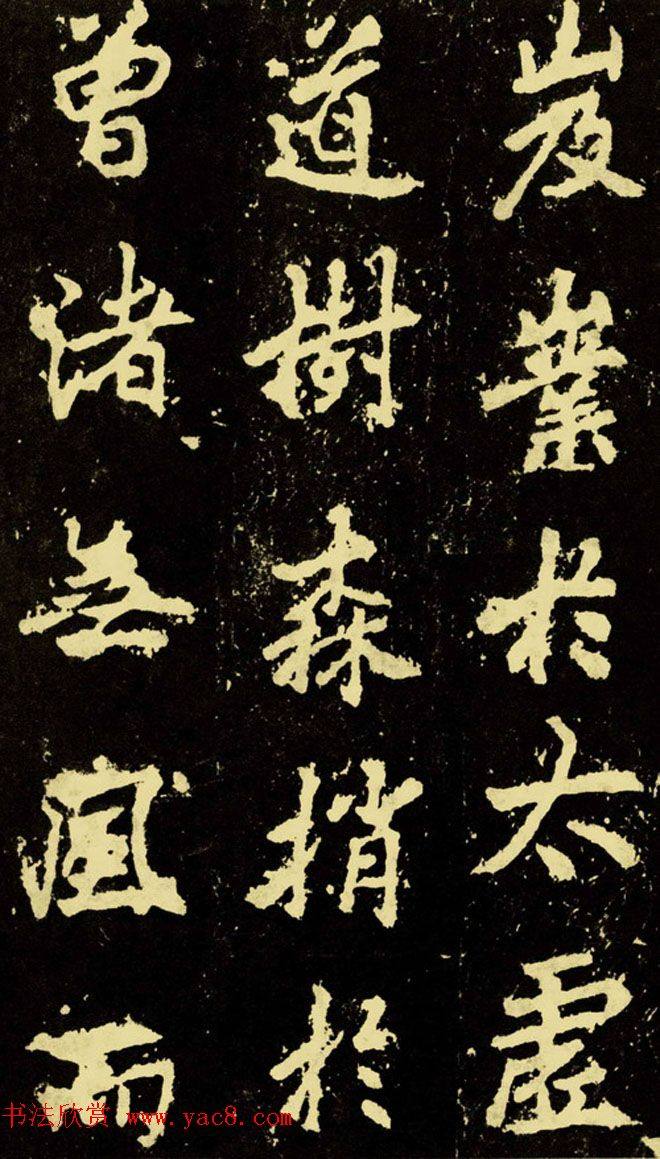 岌嶪於太虛
道樹森梢於
曾渚無風而
书法欣赏 www.yac8.com